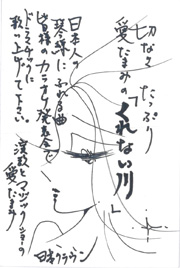 切なさたっぷり
愛たまみの
「くれない川」
日本人の
琴線にふれる曲
皆様のカラオケ発表会で
ドラマチックに
歌い上げて下さい。
漢歌とマジックショーの
愛たまみ
日本クラウン